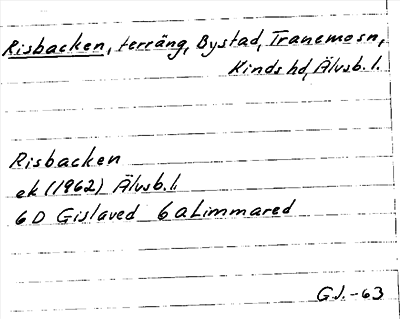 Risbacken, terräng, Bystad, Tranemo sn,
Kinds hd, Älvsb. l.
Risbacken
ek (1962) Älvsb. l.
6 D Gislaved 6 a Limmared
G.J. -63